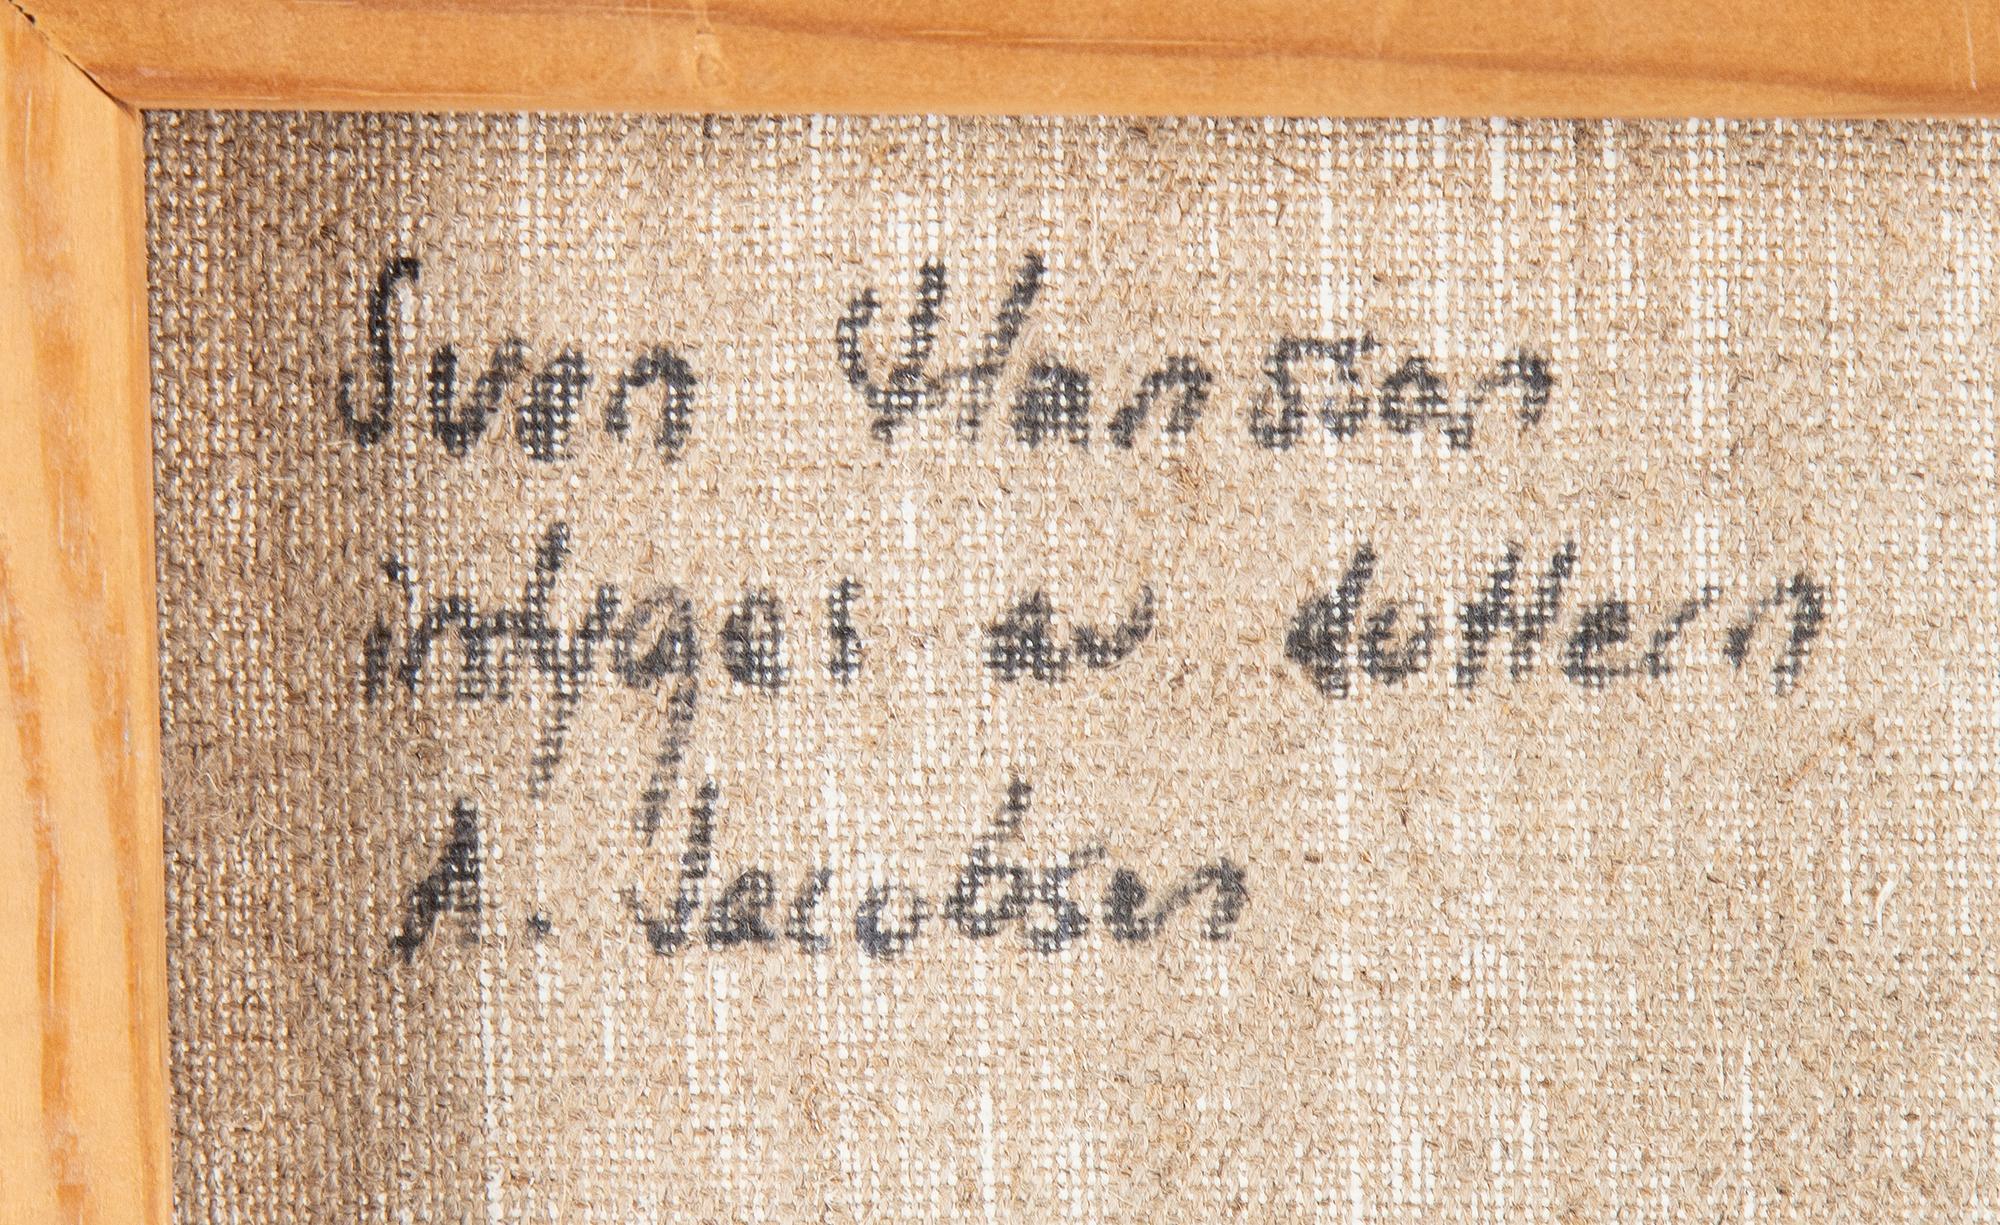 Sven Hansson
intygas av dottern
A. Jacobsen